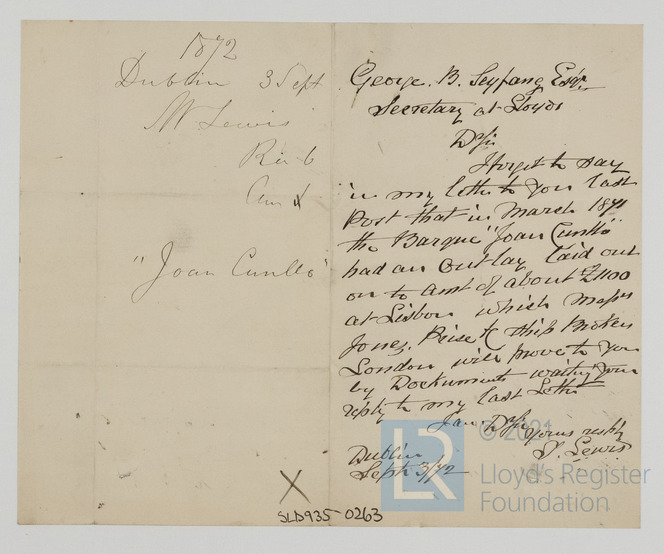 1872
Dublin 3 Sept
Lewis
"Joan Cunllo"
George. B. Seyfang Esqr
Secretary at Lloyds
D Sir
I forget to Say
in my letter to you last
Post that in March 1871
the Barque "Joan Cunllo"
had an Outlay laid out
on to amt of about £1100
at Lisbon which Messrs
Jones, Price &c Ship Broker
London will prove to you
by Dockuments waiting your
reply to my last Letter
I am D Sir
yours resply
Lewis
Dublin
Sept 3/72
X
SLD935-0263
LR
© 2021
Lloyd's Register
Foundation